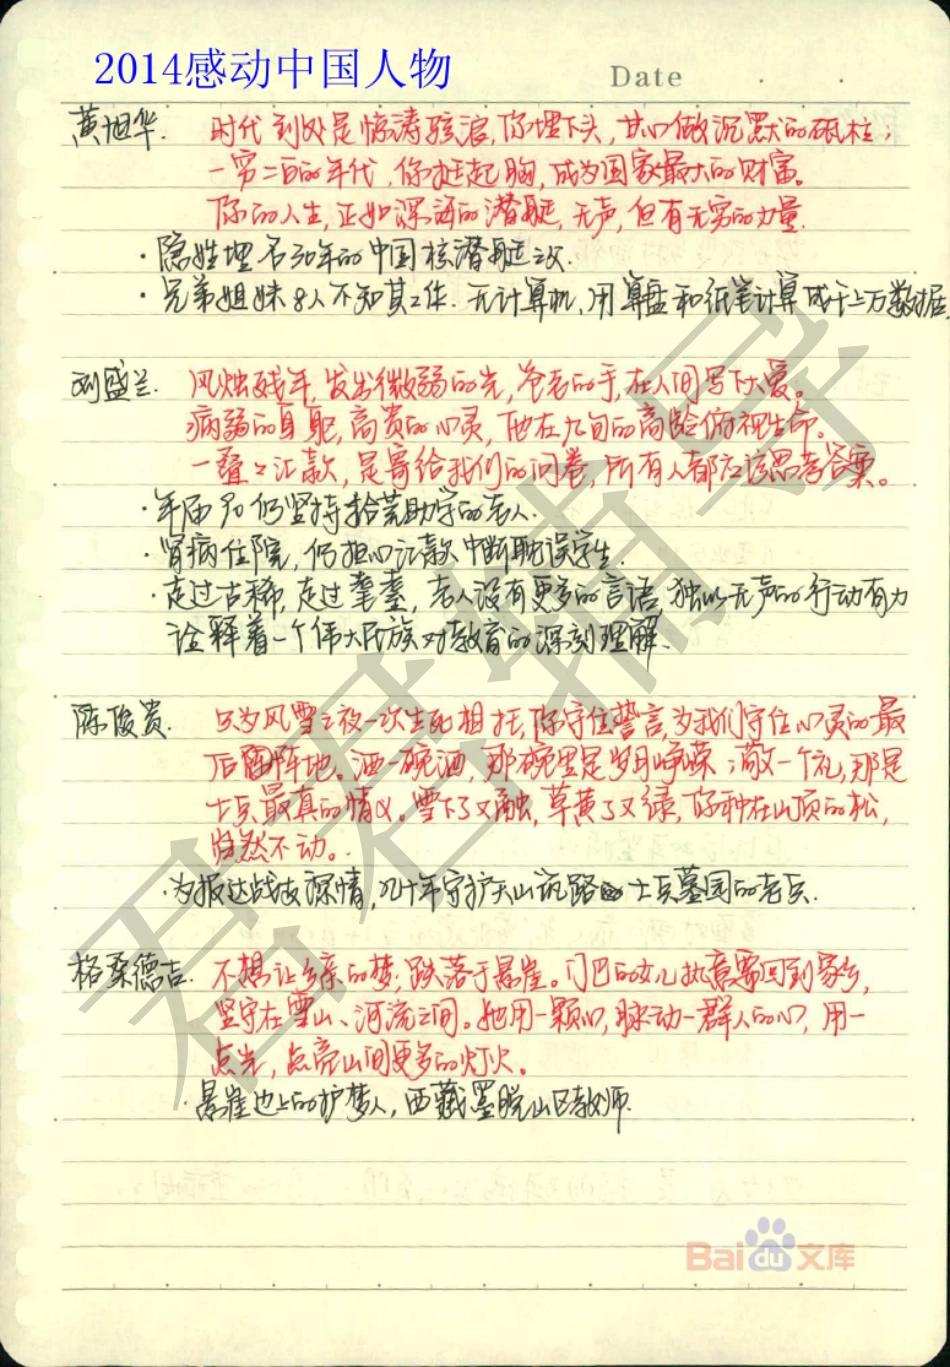 2014感动中国人物
Date
黄旭华. 时代到处是惊涛骇浪,你埋下头,甘心做沉默的砥柱;
一穷二白的年代,你挺起胸,成为国家最大的财富。
你的人生,正如深海的潜艇,无声,但有无穷的力量.
·隐姓埋名30年的中国核潜艇之父.
·兄弟姐妹8人不知其工作.无计算机,用算盘和纸笔计算成千上万数据.
刘盛兰. 风烛残年,发出微弱的光,苍老的手,在人间写下大爱。
病弱的身躯,高贵的心灵,他在九旬的高龄俯视生命。
一叠叠汇款,是寄给我们的问卷,所有人都应该思考答案。
·年届90仍坚持拾荒助学的老人.
·肾病住院,仍担心汇款中断耽误学生.
·走过古稀,走过耄耋,老人没有更多的言语,独以无声的行动有力
诠释着一个伟大民族对教育的深刻理解.
陈俊贵. 只为风雪之夜一次生死相托,你守住誓言,为我们守住心灵的最
后阵地。洒一碗酒,那碗里是岁月峥嵘;敬一个礼,那是
士兵最真的情义。雪下了又融,草黄了又绿,你种在山顶的松,
岿然不动。
·为报达战友深情,几十年守护天山筑路士兵墓园的老兵.
格桑德吉. 不想让乡亲的梦,跌落于悬崖。门巴的女儿执意要回到家乡,
坚守在雪山、河流之间。她用一颗心,脉动一群人的心,用一
点光,点亮山间更多的灯火。
·悬崖边上的护梦人,西藏墨脱山区教师.
君君辅导
Baidu文库